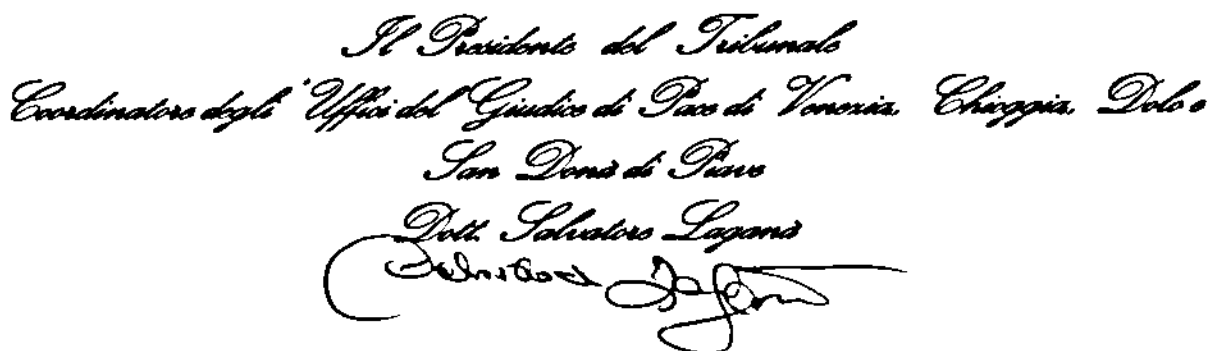 Il Presidente del Tribunale
Coordinatore degli Uffici del Giudice di Pace di Venezia, Chioggia, Dolo e
San Donà di Piave
Dott. Salvatore Laganà
Salvatore Laganà